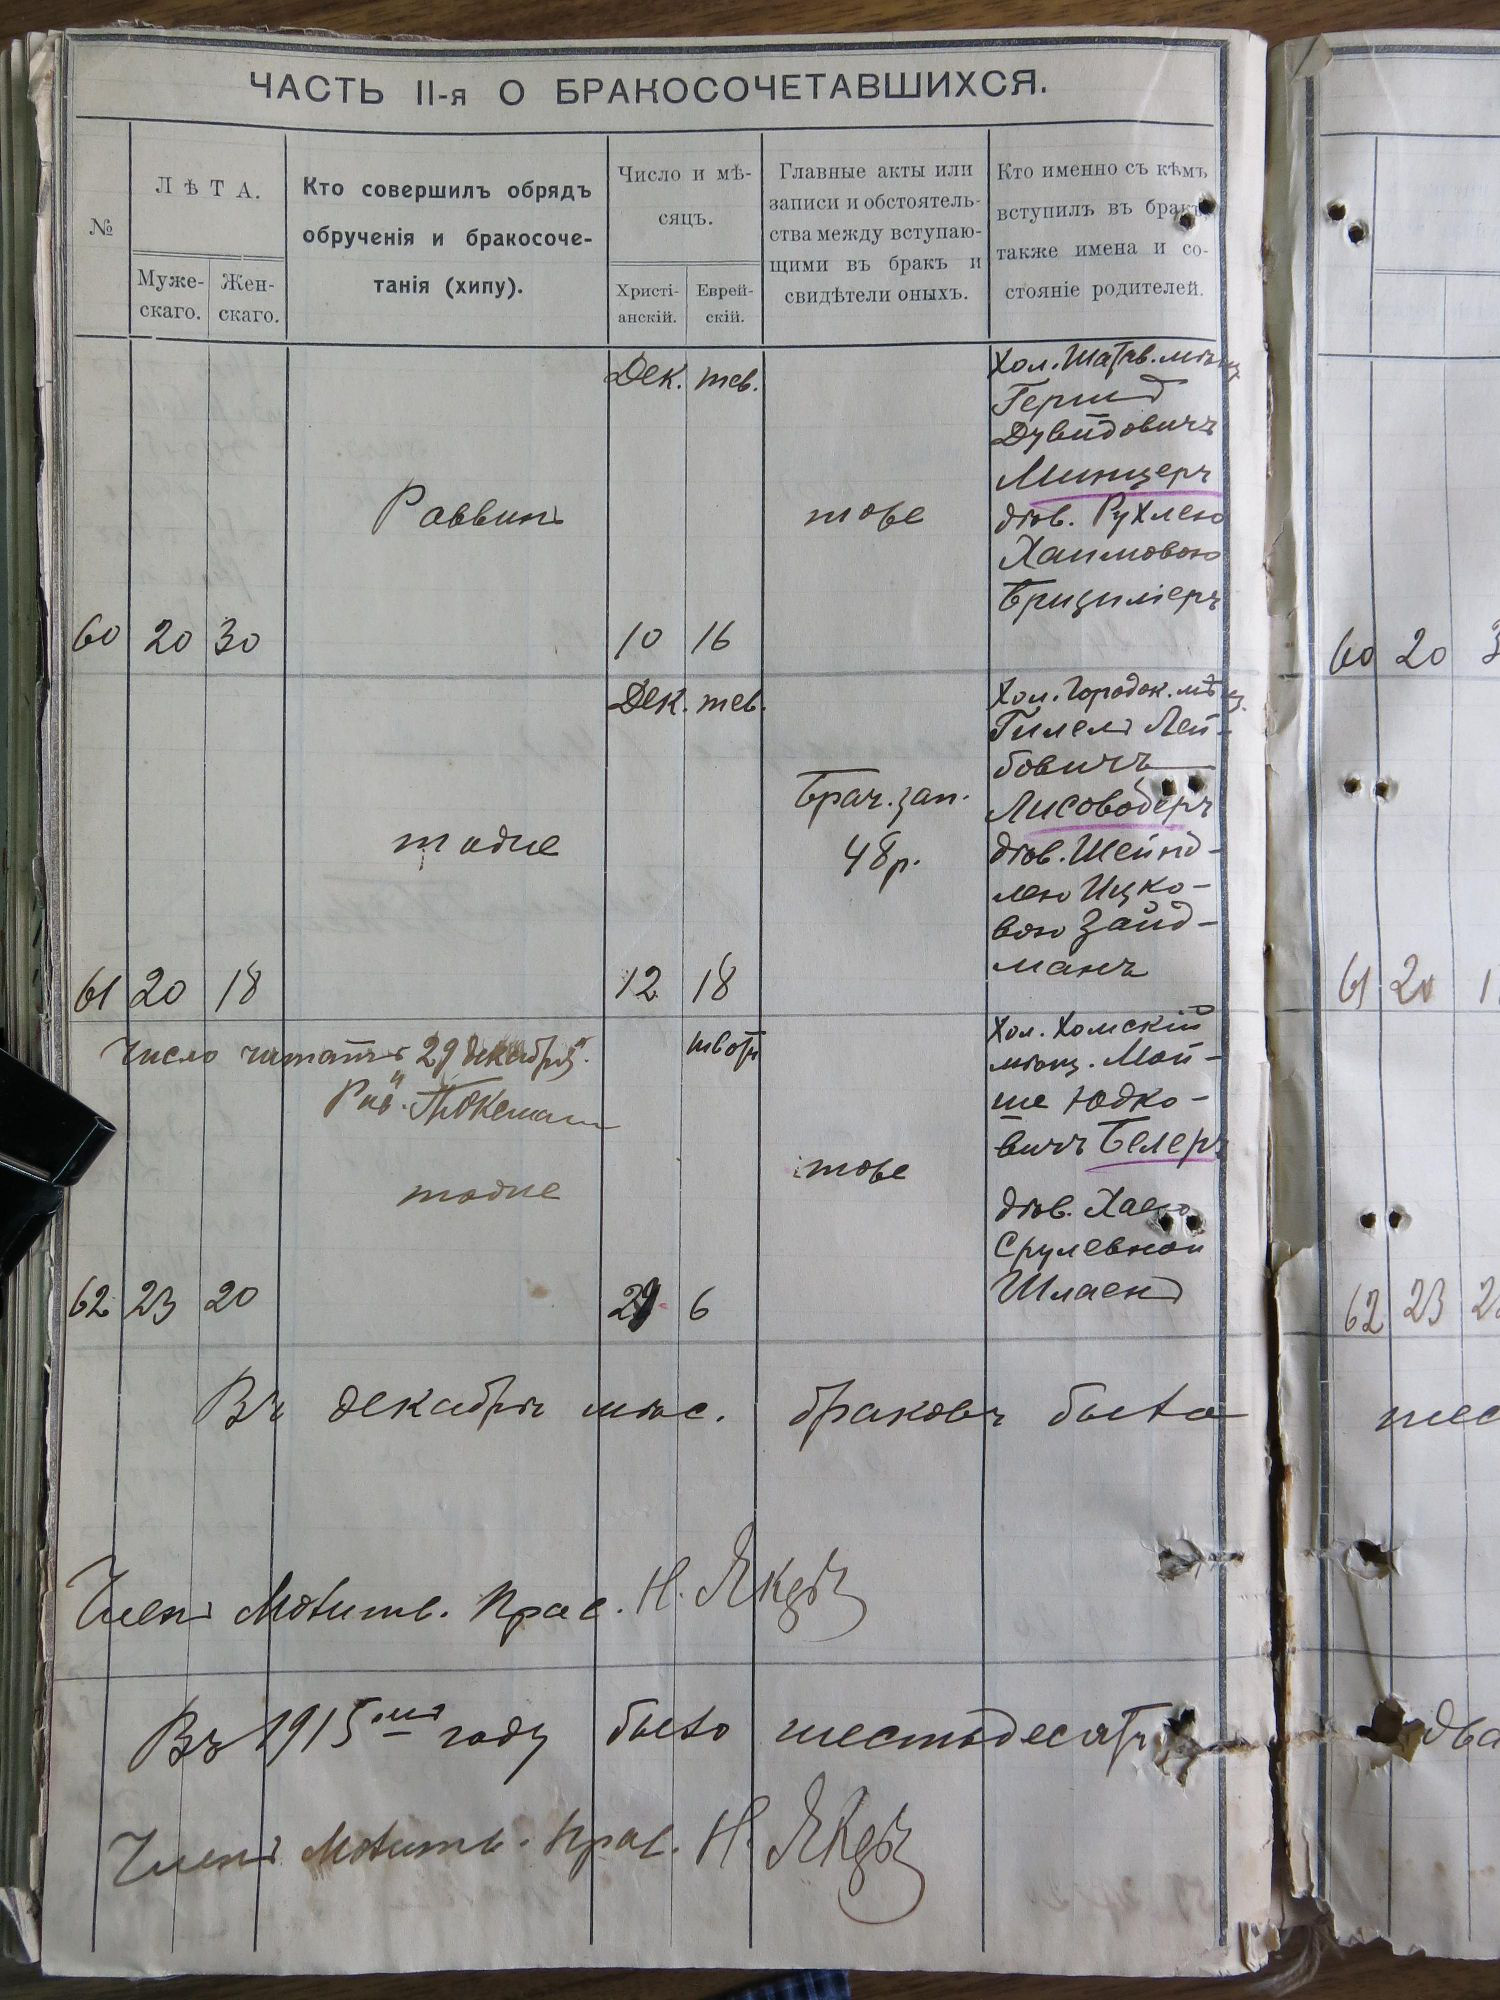 ЧАСТЬ II-я О БРАКОСОЧЕТАВШИХСЯ.
№
ЛѢТА.
Муже-
скаго.
Жен-
скаго.
Кто совершилъ обрядъ
обрученія и бракосоче-
танія (хипу).
Число и мѣ-
сяцъ.
Христі-
анскій.
Еврей-
скій.
Главные акты или
записи и обстоятель-
ства между вступаю-
щими въ бракъ и
свидѣтели оныхъ.
Кто именно съ кѣмъ
вступилъ въ бракъ,
также имена и со-
стояніе родителей.
60 20 30
Раввинъ
Дек. тев.
10 16
тоже
Хол.
Гершъ
Дувидовичъ
Минцеръ
дѣв. Рухлею
Хаимовою
61 20 18
тотже
Дек. тев.
12 18
Брач. зап.
48 р.
Хол. Городок. мѣщ.
Гилель Лей-
бовичъ
Лисободеръ
дѣв. Шейнд-
лею Ицко-
вою Зайд-
манъ
Число читать 29 декабря.
Рав.
62 23 20
тотже
29 6
тоже
Хол. Хомскій
мѣщ. Мой-
ше Юдко-
вичъ Белеръ
дѣв. Хаею
Срулевной
Шлаенъ
Въ декабрѣ мѣс. браковъ было
Членъ Молитв. Прав. Н.
Въ 1915 году было шестьдесятъ
Членъ Молитв. Прав. Н.
60 20 3
61 20 1
62 23 2
шес
два